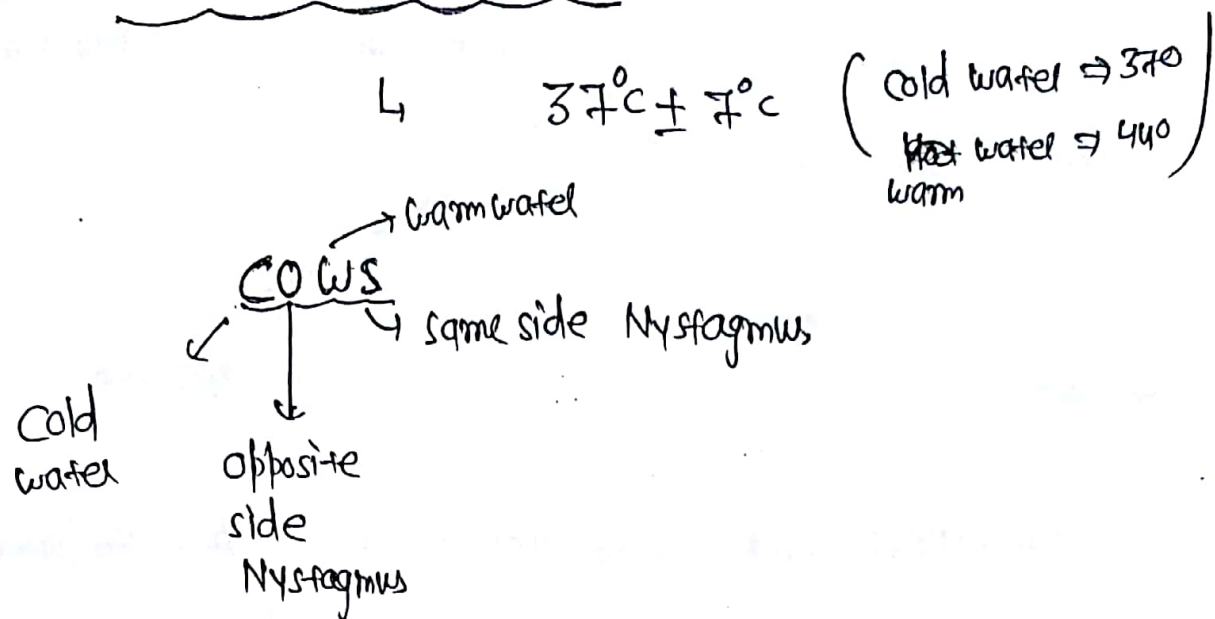 ↳ 37°C ± 7°C (cold water ⇒ 370
warm water ⇒ 440)
→ warm water
COWS
↳ same side Nystagmus
cold
water
opposite
side
Nystagmus